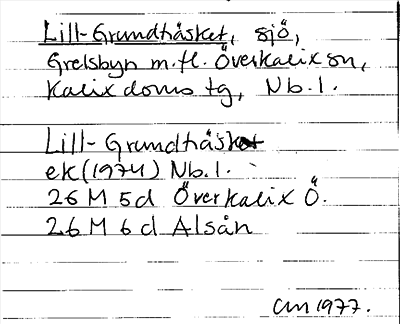 Lill-Grundträsket, sjö,
Grelsbyn m.fl. Överkalix sn,
Kalix doms tg, Nb.l.
Lill-Grundträsket
ek (1974) Nb.l.
26 M 5d Överkalix Ö.
26 M 6d Alsån
1977.